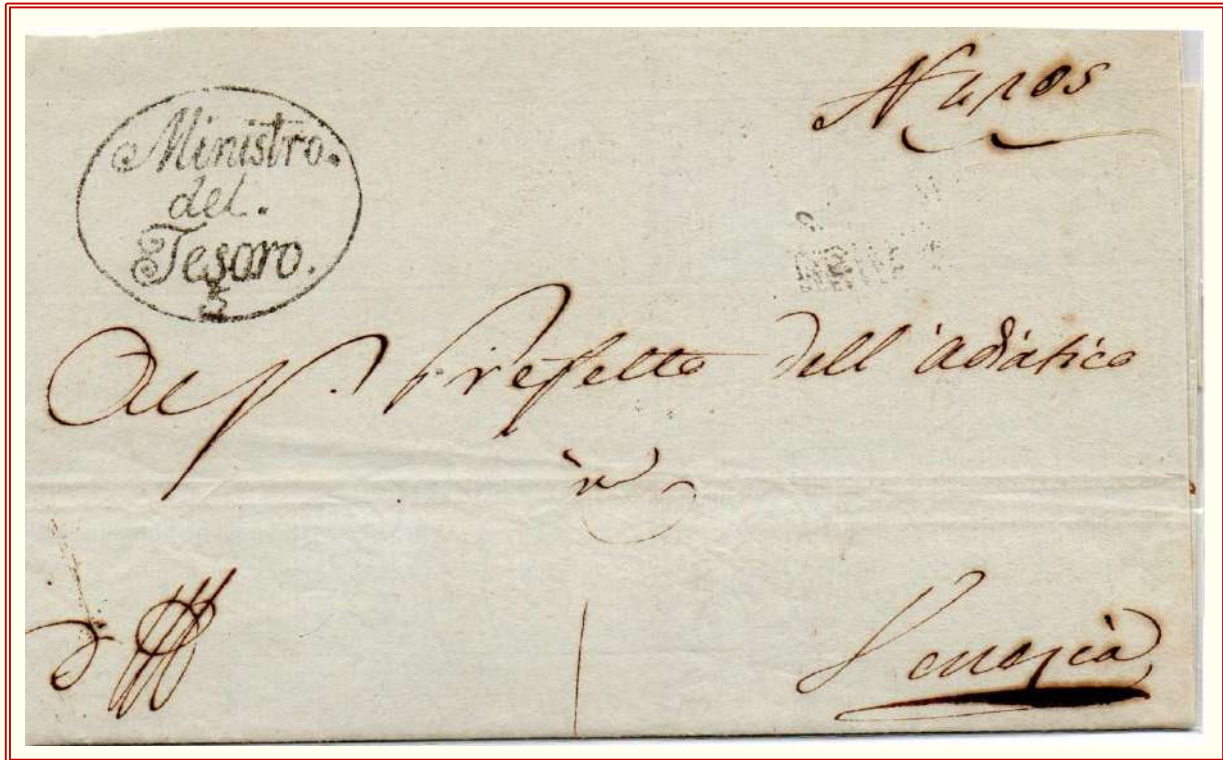 Ministro.
del.
Tesoro.
5
N 4105
Al S. Prefetto dell'adriatico
in
Venezia